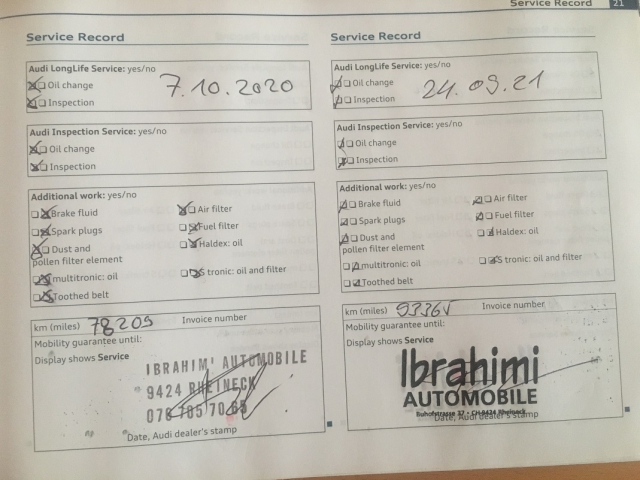 Service Record 21
Service Record
Audi LongLife Service: yes/no
Oil change
Inspection
7.10.2020
Audi Inspection Service: yes/no
Oil change
Inspection
Additional work: yes/no
Brake fluid
Air filter
Spark plugs
Fuel filter
Dust and
pollen filter element
Haldex: oil
multitronic: oil
S tronic: oil and filter
Toothed belt
km (miles) 78209 Invoice number
Mobility guarantee until:
Display shows Service
IBRAHIMI AUTOMOBILE
9424 RHEINECK
Date, Audi dealer's stamp
Service Record
Audi LongLife Service: yes/no
Oil change
Inspection
24.09.21
Audi Inspection Service: yes/no
Oil change
Inspection
Additional work: yes/no
Brake fluid
Air filter
Spark plugs
Fuel filter
Dust and
pollen filter element
Haldex: oil
multitronic: oil
S tronic: oil and filter
Toothed belt
km (miles) Invoice number
Mobility guarantee until:
Display shows Service
Ibrahimi
AUTOMOBILE
CH-9424 Rheineck
Date, Audi dealer's stamp